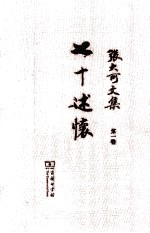 張大可文集
第一卷
七十述懷
商務印書館